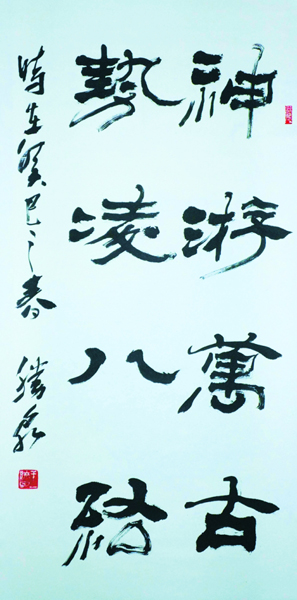 神游萬古
勢凌八
時在癸巳之春 勝